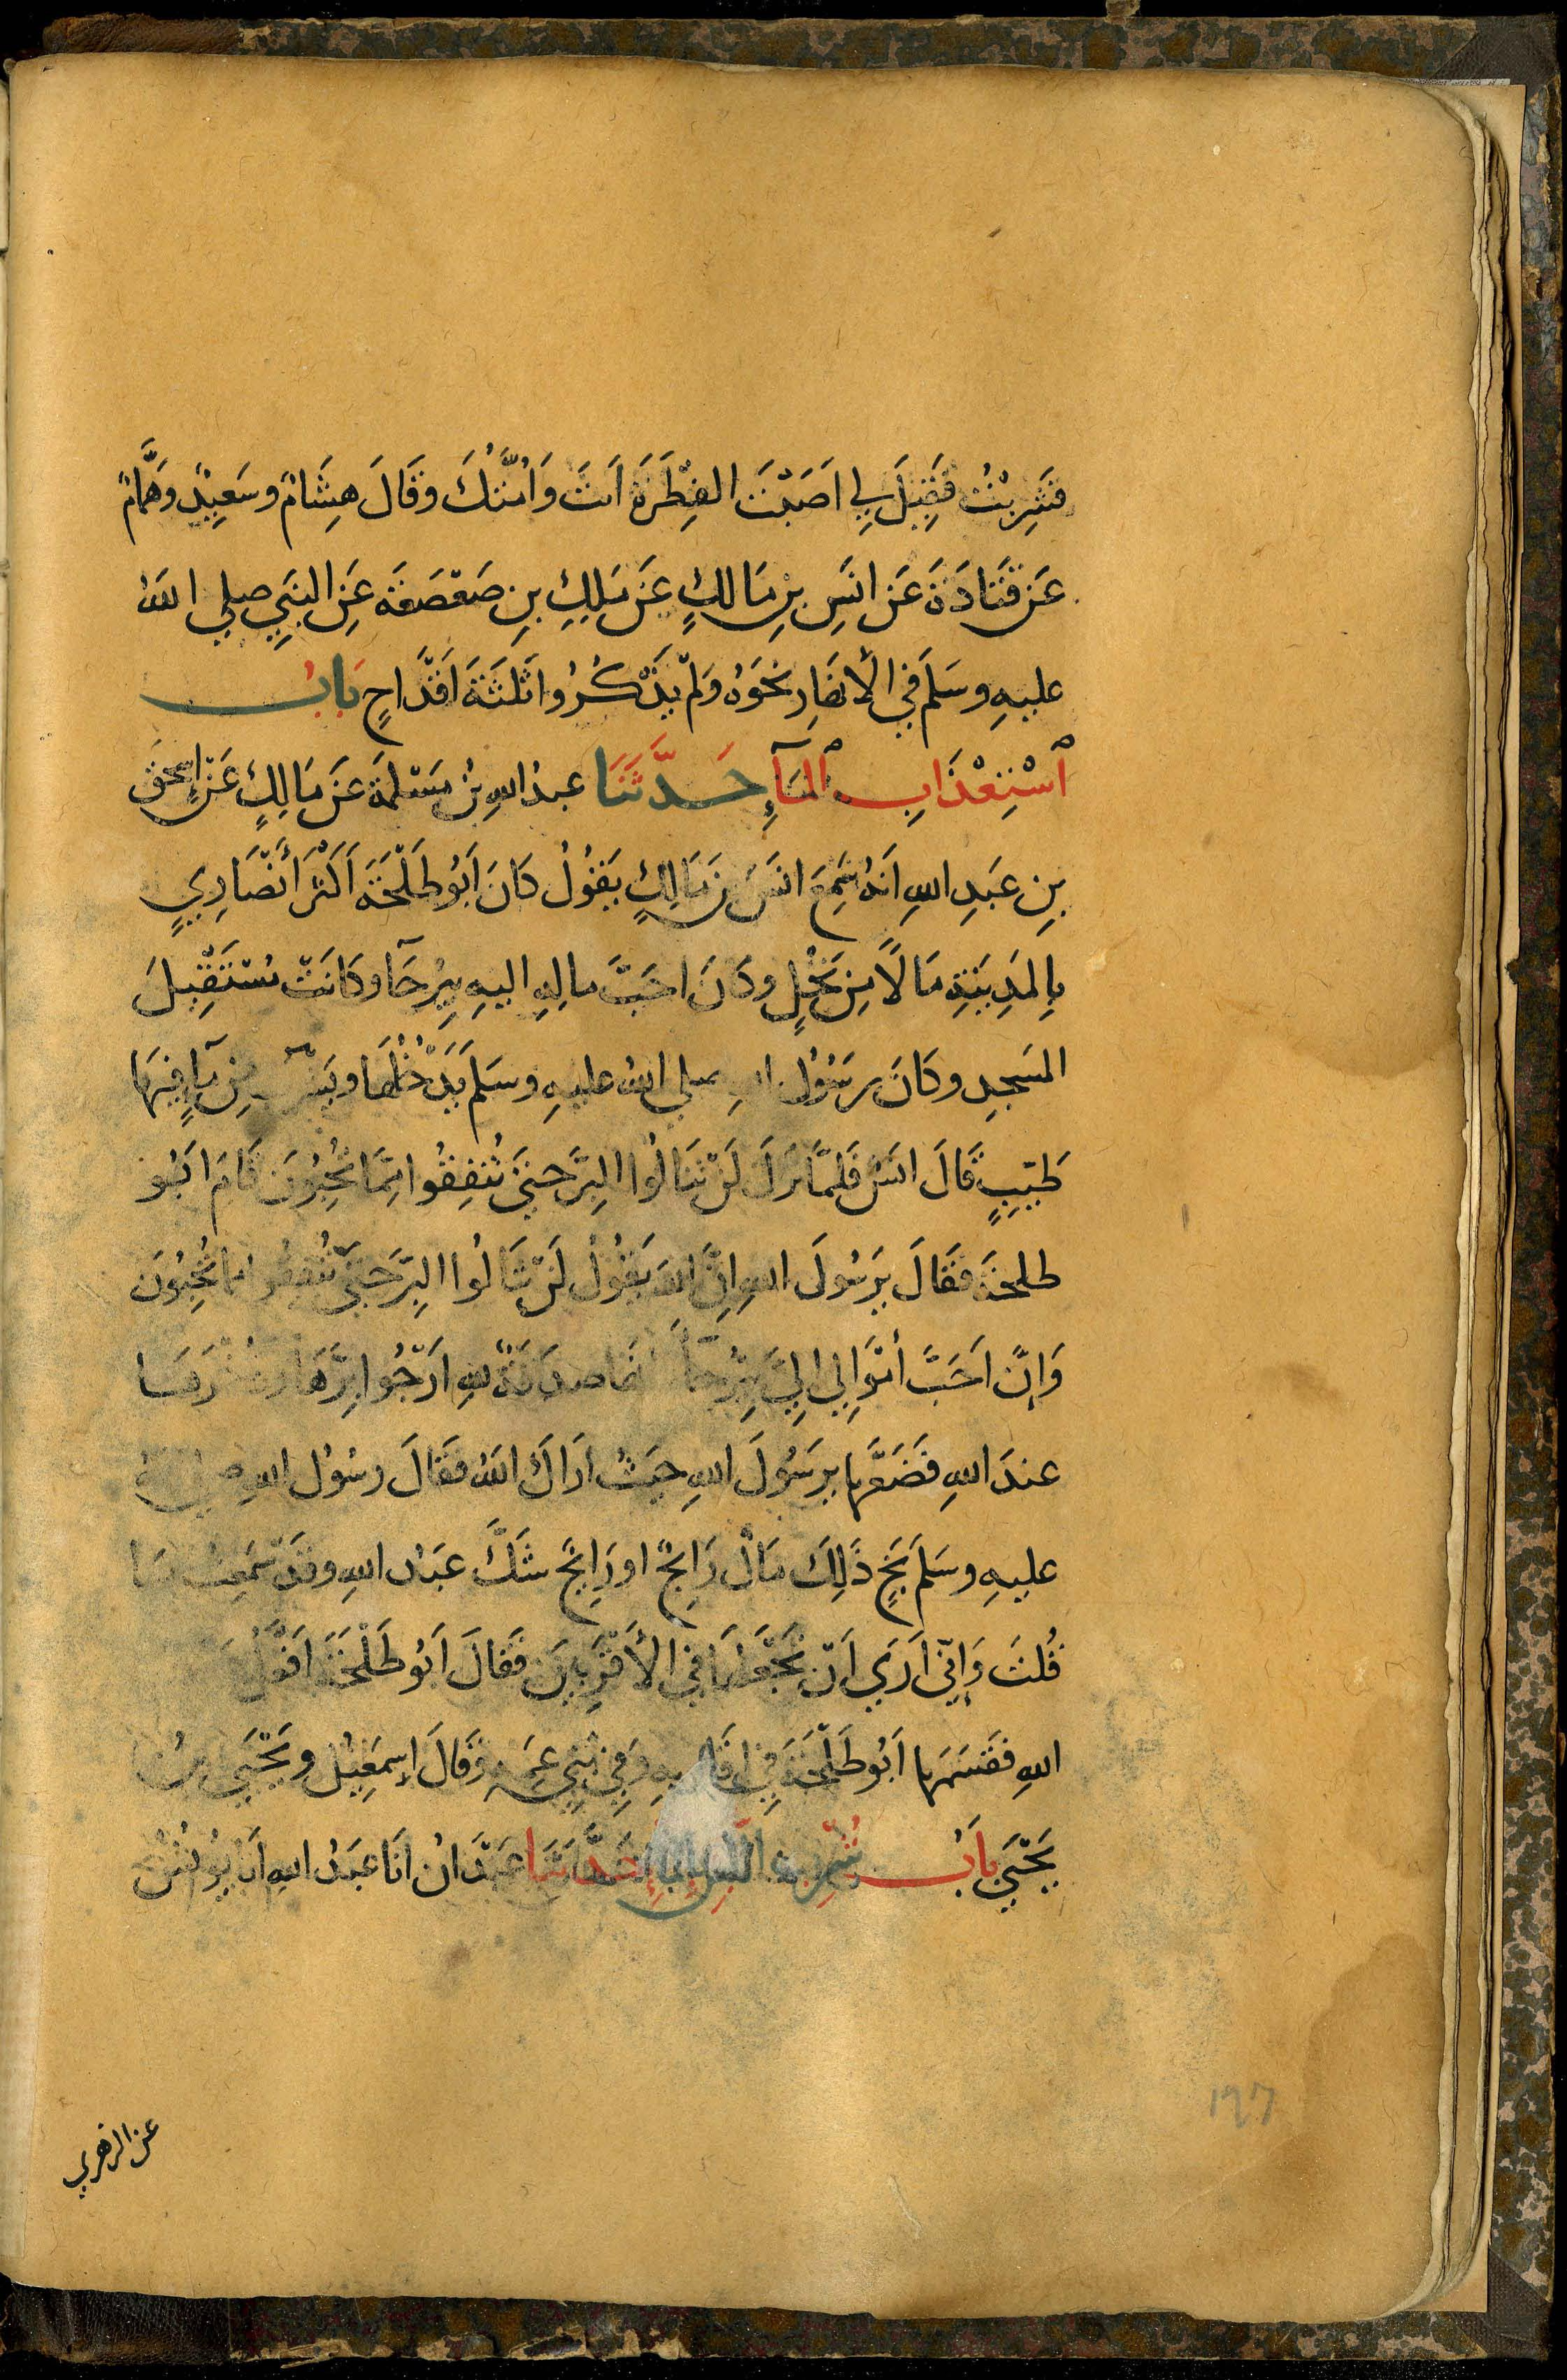 فَشَرِبْتُ فَقِيلَ لِي اَصَبْتَ الفِطْرَةَ اَنتَ وَاُمَّتُكَ وقَالَ هِشَامٌ وسَعِيدٌ وهَمَّامٌ
عَن قَتَادَةَ عَن انَسِ بنِ مَالكٍ عَن مَلِكِ بنِ صَعْصَعَةَ عَنِ النَبِيِّ صلي اللهُ
عليهِ وسَلمَ فِي الأنهَارِ نحَوَهُ ولَم يَذْكُرُوا ثَلثَةَ اَقْدَاحٍ بَابُ
ٱسْتِعْذَابِ ٱلمَآءِ حَدَّثَنَا عبدُ اللهِ بنُ مَسْلَمَةَ عَن مَالِكٍ عَن اِسحقَ
بنِ عَبدِ اللهِ اَنهُ سَمِعَ انَسَ بنَ مَالِكٍ يَقُولُ كانَ اَبُو طَلْحَةَ اَكْثَرَ أنْصَارِيٍ
بِالمَدِينَةِ مَالًا مِن نَخْلٍ وكَانَ احَبَّ مالِهِ اليهِ بيِرُحَآ وكانَتْ مُسْتَقْبِلَ
المَسجِدِ وكَانَ رسَوُلُ اللهِ صلي اللهُ عليهِ وسَلمَ يَدْخُلُهَا ويَشْرَبُ مِن مآءٍ فِيهَا
طَيِّبٍ قَالَ انَسٌ فَلمَّا نَزَلَ لَنْ تَنَالُوا البِرَّ حتيَّ تُنفِقُوا مِمَّا تُحِبُّونَ قامَ اَبُو
طلحَةَ فقَالَ يرَسُولَ اللهِ اِنَّ اللهَ يَقُولُ لَنْ تنَالُوا البِرَّ حَتيَّ تُنفِقُوا مما تُحِبُّونَ
وَاِنَّ اَحَبَّ أمْوَالِي اِلَيَّ بِيرُحَآ وانهَا صدَقَةٌ للهِ ارَجُوا بِرَّهَا وذُخْرَهَا
عندَ اللهِ فَضَعْهَا يرَسُولَ اللهِ حَيثُ ارَاكَ اللهُ فقَالَ رسُولُ اللهِ صلي اللهُ
عليهِ وسَلمَ بَخٍ ذَلِكَ مَالٌ رَابِحٌ او رَايِحٌ شَكَّ عبَدُ اللهِ وقَدْ سَمِعتُ مَا
قُلتَ وَاِنِّي اَرَي اَن تَجْعَلَهَا فِي الأقْرَبِينَ فقَالَ اَبُو طَلْحَةَ اَفْعَلُ يرَ
اللهِ فقَسَمَهَا اَبُو طَلْحَةَ فِي اقَاربِهِ وَفِي بَنِي عَمِهِ وقَالَ إِسمَعِيلُ ويَحْيَي بنُ
يَحْيَي بَابُ شُرْبِ اللَّبَنِ بِالمَآءِ حَدَّثنَا عَبْدَانُ انَا عَبدُ اللهِ انَا يُونُسُ
عن الزهري
١٦٧